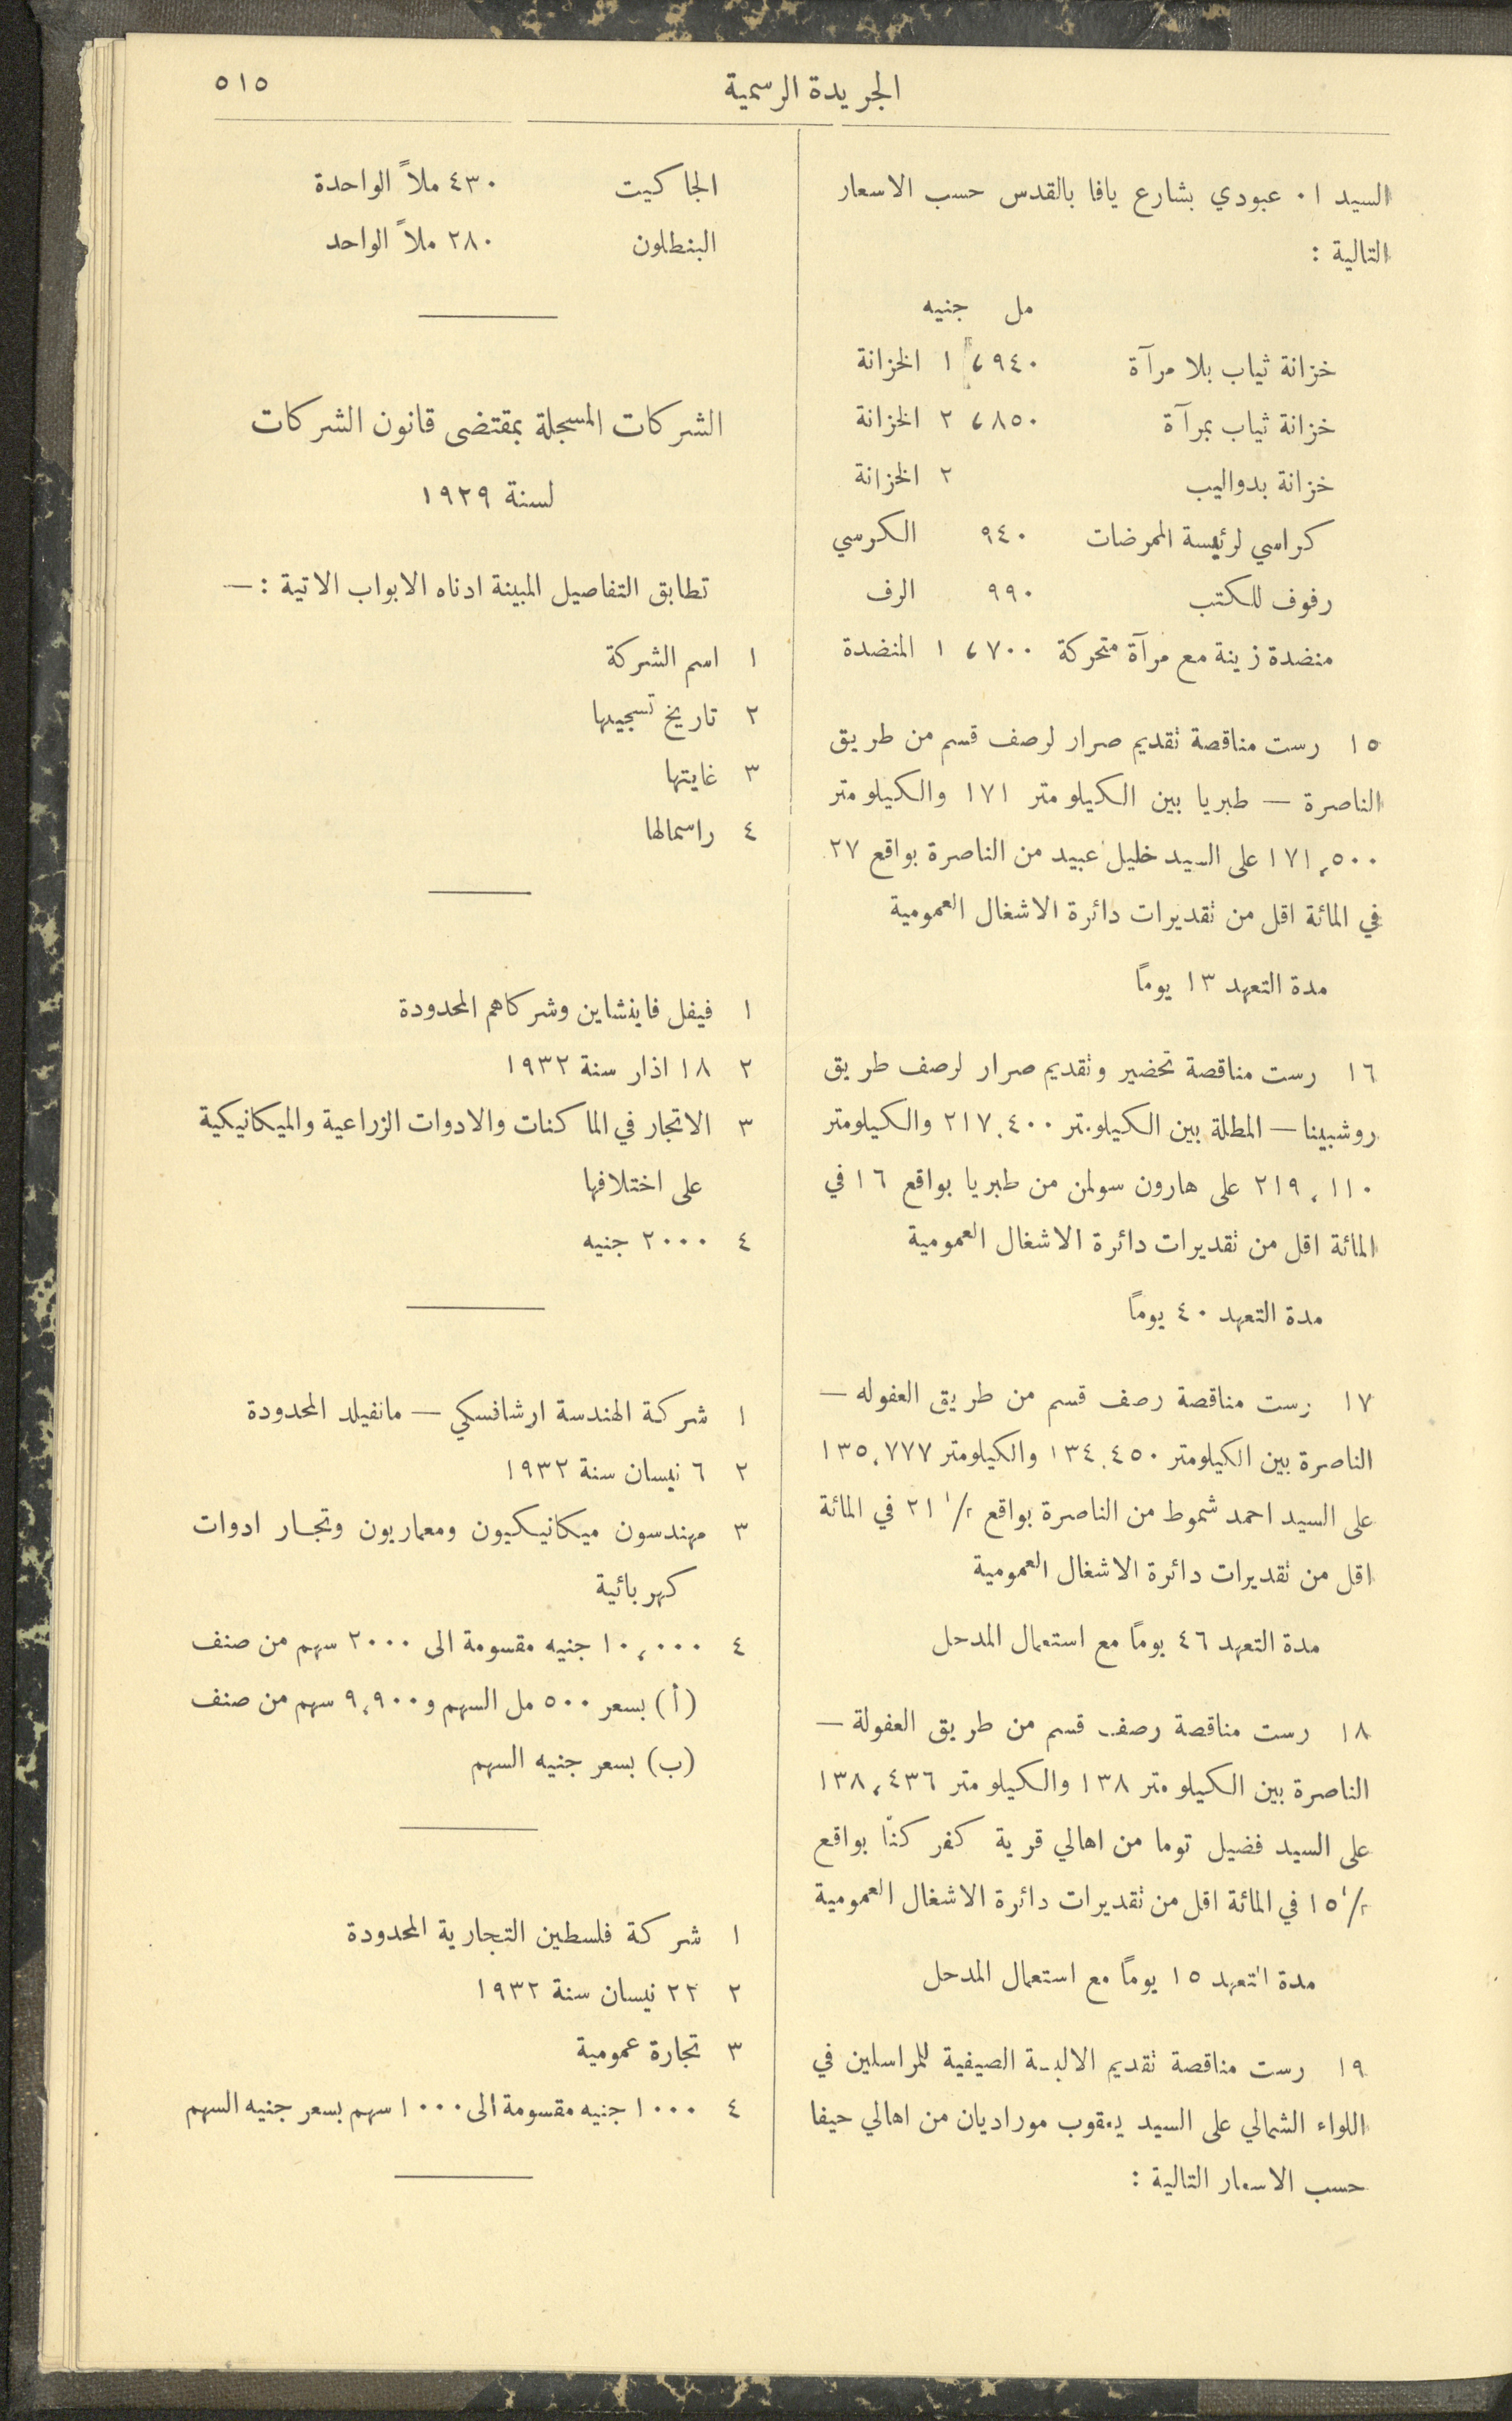 الجريدة الرسمية
٥١٥
السيد ا. عبودي بشارع يافا بالقدس حسب الاسعار
التالية :
مل جنيه
خزانة ثياب بلا مرآة ٩٤٠، ١ الخزانة
خزانة ثياب بمرآة ٨٥٠، ٢ الخزانة
خزانة بدواليب ٢ الخزانة
كراسي لرئيسة الممرضات ٩٤٠ الكرسي
رفوف للكتب ٩٩٠ الرف
منضدة زينة مع مرآة متحركة ٧٠٠، ١ المنضدة
١٥ رست مناقصة تقديم صرار لرصف قسم من طريق
الناصرة — طبريا بين الكيلو متر ١٧١ والكيلو متر
١٧١,٥٠٠ على السيد خليل عبيد من الناصرة بواقع ٢٧
في المائة اقل من تقديرات دائرة الاشغال العمومية
مدة التعهد ١٣ يوماً
١٦ رست مناقصة تحضير وتقديم صرار لرصف طريق
روشبينا — المطلة بين الكيلو متر ٢١٧,٤٠٠ والكيلومتر
٢١٩,١١٠ على هارون سولمن من طبريا بواقع ١٦ في
المائة اقل من تقديرات دائرة الاشغال العمومية
مدة التعهد ٤٠ يوماً
١٧ رست مناقصة رصف قسم من طريق العفوله —
الناصرة بين الكيلومتر ١٣٤,٤٥٠ والكيلومتر ١٣٥,٧٧٧
على السيد احمد شموط من الناصرة بواقع ١/٢ ٢١ في المائة
اقل من تقديرات دائرة الاشغال العمومية
مدة التعهد ٤٦ يوماً مع استعمال المدحل
١٨ رست مناقصة رصف قسم من طريق العفولة —
الناصرة بين الكيلو متر ١٣٨ والكيلو متر ١٣٨,٤٣٦
على السيد فضيل توما من اهالي قرية كفر كنّا بواقع
١/٢ ١٥ في المائة اقل من تقديرات دائرة الاشغال العمومية
مدة التعهد ١٥ يوماً مع استعمال المدحل
١٩ رست مناقصة تقديم الالبسة الصيفية للمراسلين في
اللواء الشمالي على السيد يعقوب موراديان من اهالي حيفا
حسب الاسعار التالية :
الجاكيت ٤٣٠ ملاً الواحدة
البنطلون ٢٨٠ ملاً الواحد
الشركات المسجلة بمقتضى قانون الشركات
لسنة ١٩٢٩
تطابق التفاصيل المبينة ادناه الابواب الاتية : —
١ اسم الشركة
٢ تاريخ تسجيلها
٣ غايتها
٤ راسمالها
١ فيفل فاينشاين وشركاهم المحدودة
٢ ١٨ اذار سنة ١٩٣٢
٣ الاتجار في الماكنات والادوات الزراعية والميكانيكية
على اختلافها
٤ ٢٠٠٠ جنيه
١ شركة الهندسة ارشافسكي — مانفيلد المحدودة
٢ ٦ نيسان سنة ١٩٣٢
٣ مهندسون ميكانيكيون ومعماريون وتجار ادوات
كهربائية
٤ ١٠,٠٠٠ جنيه مقسومة الى ٢٠٠٠ سهم من صنف
(أ) بسعر ٥٠٠ مل السهم و٩,٩٠٠ سهم من صنف
(ب) بسعر جنيه السهم
١ شركة فلسطين التجارية المحدودة
٢ ٢٢ نيسان سنة ١٩٣٢
٣ تجارة عمومية
٤ ١٠٠٠ جنيه مقسومة الى ١٠٠٠ سهم بسعر جنيه السهم